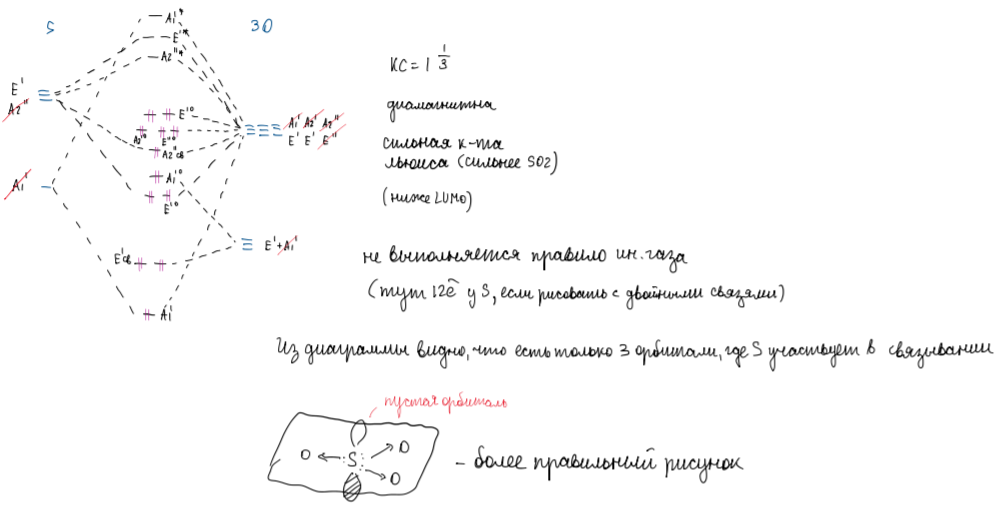 S
3O
A1'*
E'*
A2''*
E'
A2''
E'⁰
A1' A2' A2''
A2'⁰
E''⁰
E' E' E''
A2''св
A1'
A1'⁰
E'⁰
E'+A1'
E'св
A1'
КС = 1 1/3
диамагнитна
сильная к-та
льюиса (сильнее SO2)
(ниже LUMO)
не выполняется правило ин. газа
(тут 12ē у S, если рисовать с двойными связями)
Из диаграммы видно, что есть только 3 орбитали, где S участвует в связывании
пустая орбиталь
O ← :S: → O
→ O
– более правильный рисунок